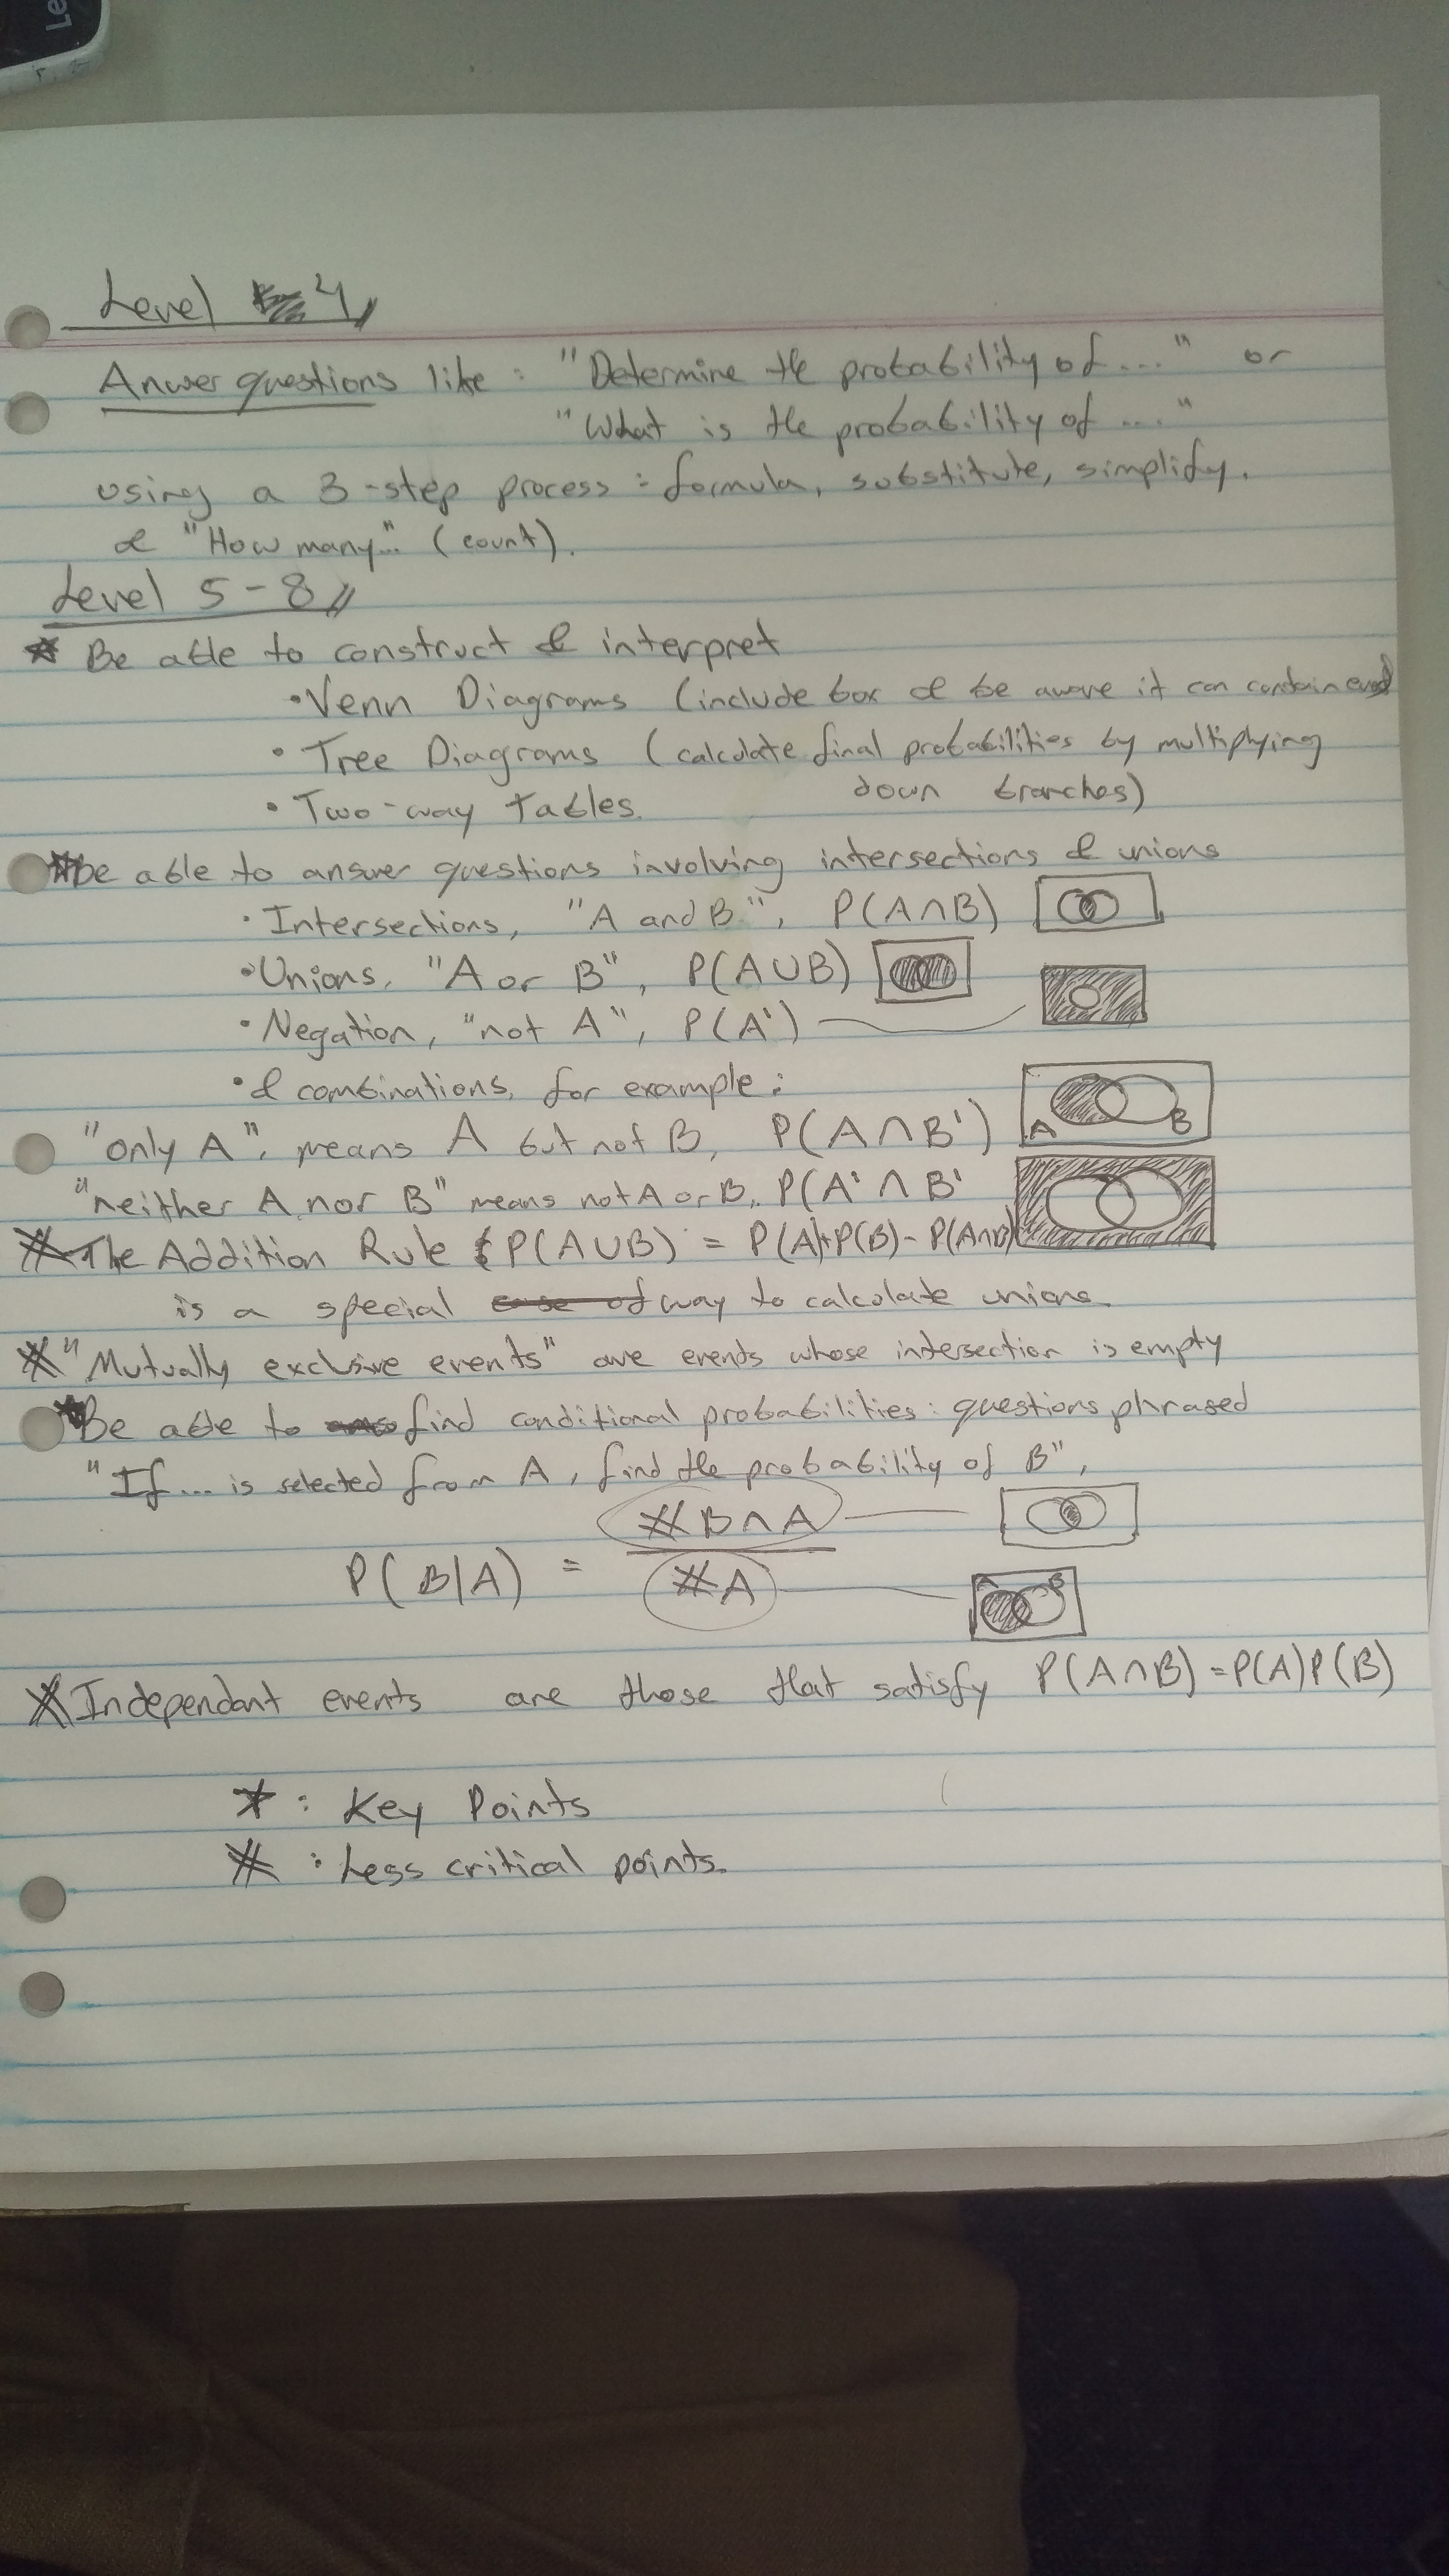 Le
Level 4
Anwer questions like : "Determine the probability of ..." or
"What is the probability of ..."
using a 3-step process : formula, substitute, simplify.
& "How many.." (count).
Level 5-8
* Be able to construct & interpret
• Venn Diagrams (include box & be aware it can contain
• Tree Diagrams (calculate final probabilities by multiplying
down branches)
• Two-way tables.
* be able to answer questions involving intersections & unions
• Intersections, "A and B", P(A∩B)
• Unions, "A or B", P(A∪B)
• Negation, "not A", P(A')
• & combinations, for example:
"only A", means A but not B, P(A∩B')
A B
"neither A nor B" means not A or B, P(A'∩B'
* The Addition Rule P(A∪B) = P(A)+P(B)-P(A∩B)
is a special case of way to calculate unions.
* "Mutually exclsive events" are events whose intersection is empty
* Be able to find conditional probabilities : questions phrased
"If ... is selected from A, find the probability of B",
P(B|A) = #B∩A
#A
A B
* Independant events are those that satisfy P(A∩B)=P(A)P(B)
* : Key Points
* : Less critical points.